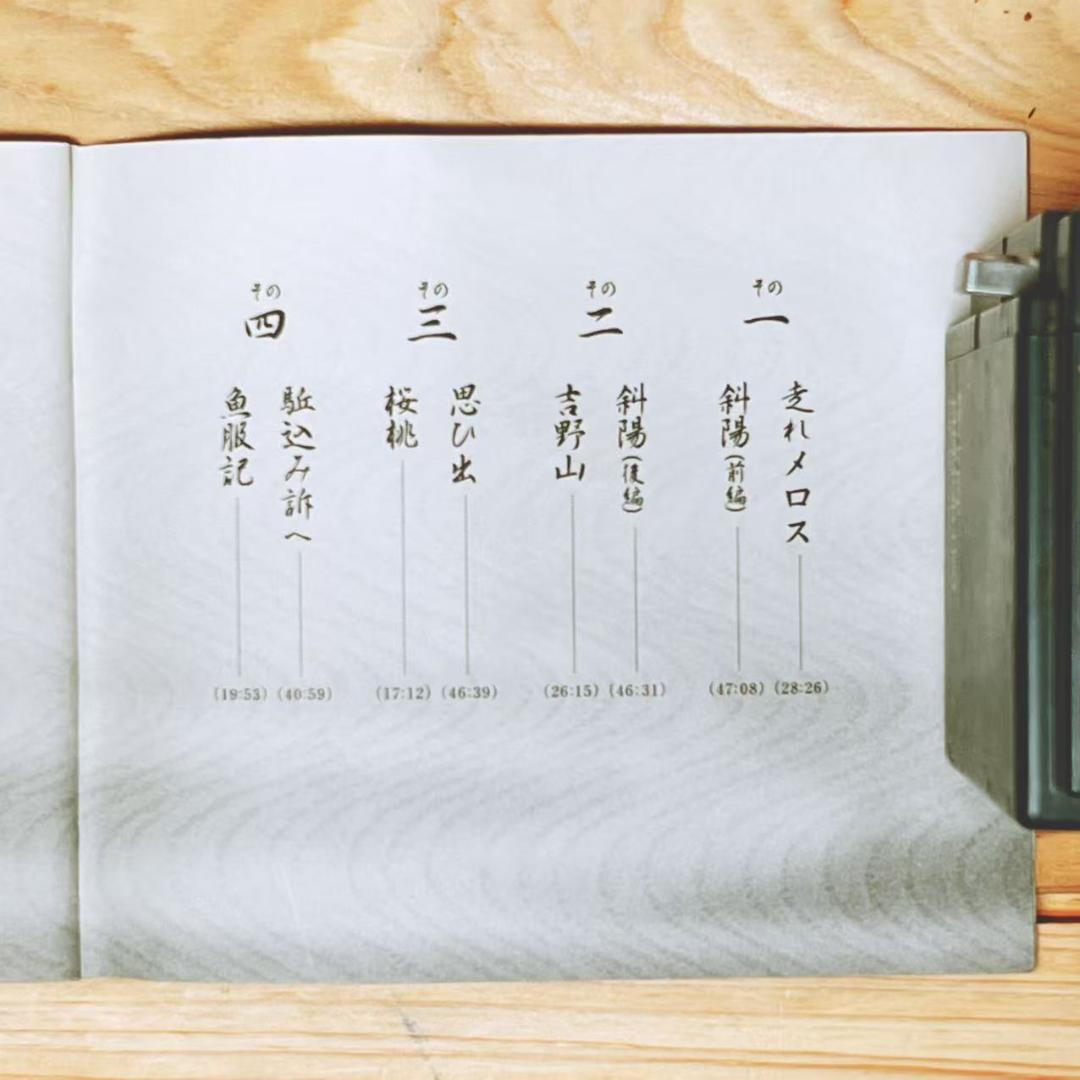 その
一
走れメロス
(28:26)
斜陽(前編)
(47:08)
その
二
斜陽(後編)
(46:31)
吉野山
(26:15)
その
三
思ひ出
(46:39)
桜桃
(17:12)
その
四
駈込み訴へ
(40:59)
魚服記
(19:53)